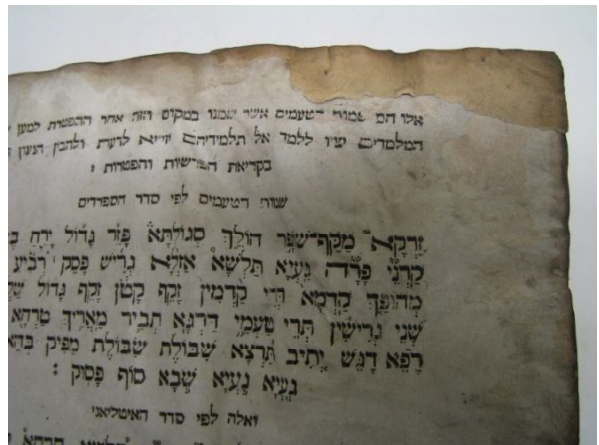 אלו הם שמות הטעמים אשר שמנו במקום הזה אחר ההפטרות למען
המלמדים יצ״ו ללמד אל תלמידיהם יזי״א לדעת ולהבין הניגון
בקריאת הפרשיות והפטרות :
שמות הטעמים לפי סדר הספרדים
זַרְקָא מַקַּף־שׁוֹפָר הוֹלֵךְ סְגוֹלְתָּא פָּזֵר גָּדוֹל יָרֵחַ
קַרְנֵי פָרָה גַּעְיָא תַּלְשָׁא אַזְלָא גְּרִישׁ פָּסֵק רְבִיעַ
מְהוּפָּךְ קַדְמָא תְּרֵי קַדְמִין זָקֵף קָטֹן זָקֵף גָּדוֹל
שְׁנֵי גְרִישִׁין תְּרֵי טַעֲמֵי דַּרְגָּא תְּבִיר מַאֲרִיךְ טַרְחָא
רָפֶא דָגֵשׁ יְתִיב תִּרְצָא שִׁבּוֹלֶת סִבּוֹלֶת מַפִּיק
גַּעְיָא גַּעְיָא שְׁבָא סוֹף פָּסוּק :
ואלה לפי סדר האיטליאני